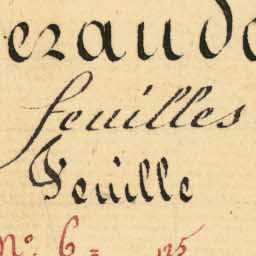 eraude
feuilles
Feuille
N.º 6 = 125